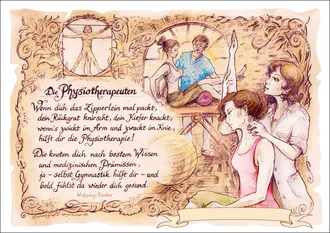 Die Physiotherapeuten
Wenn dich das Zipperlein mal packt,
dein Rückgrat knirscht, dein Kiefer knackt,
wenn's zwickt im Arm und zwackt im Knie,
hilft dir die Physiotherapie!
Die kneten dich nach bestem Wissen
und medizinischen Prämissen,
ja – selbst Gymnastik hilft dir – und
bald fühlst du wieder dich gesund.
Wolfgang